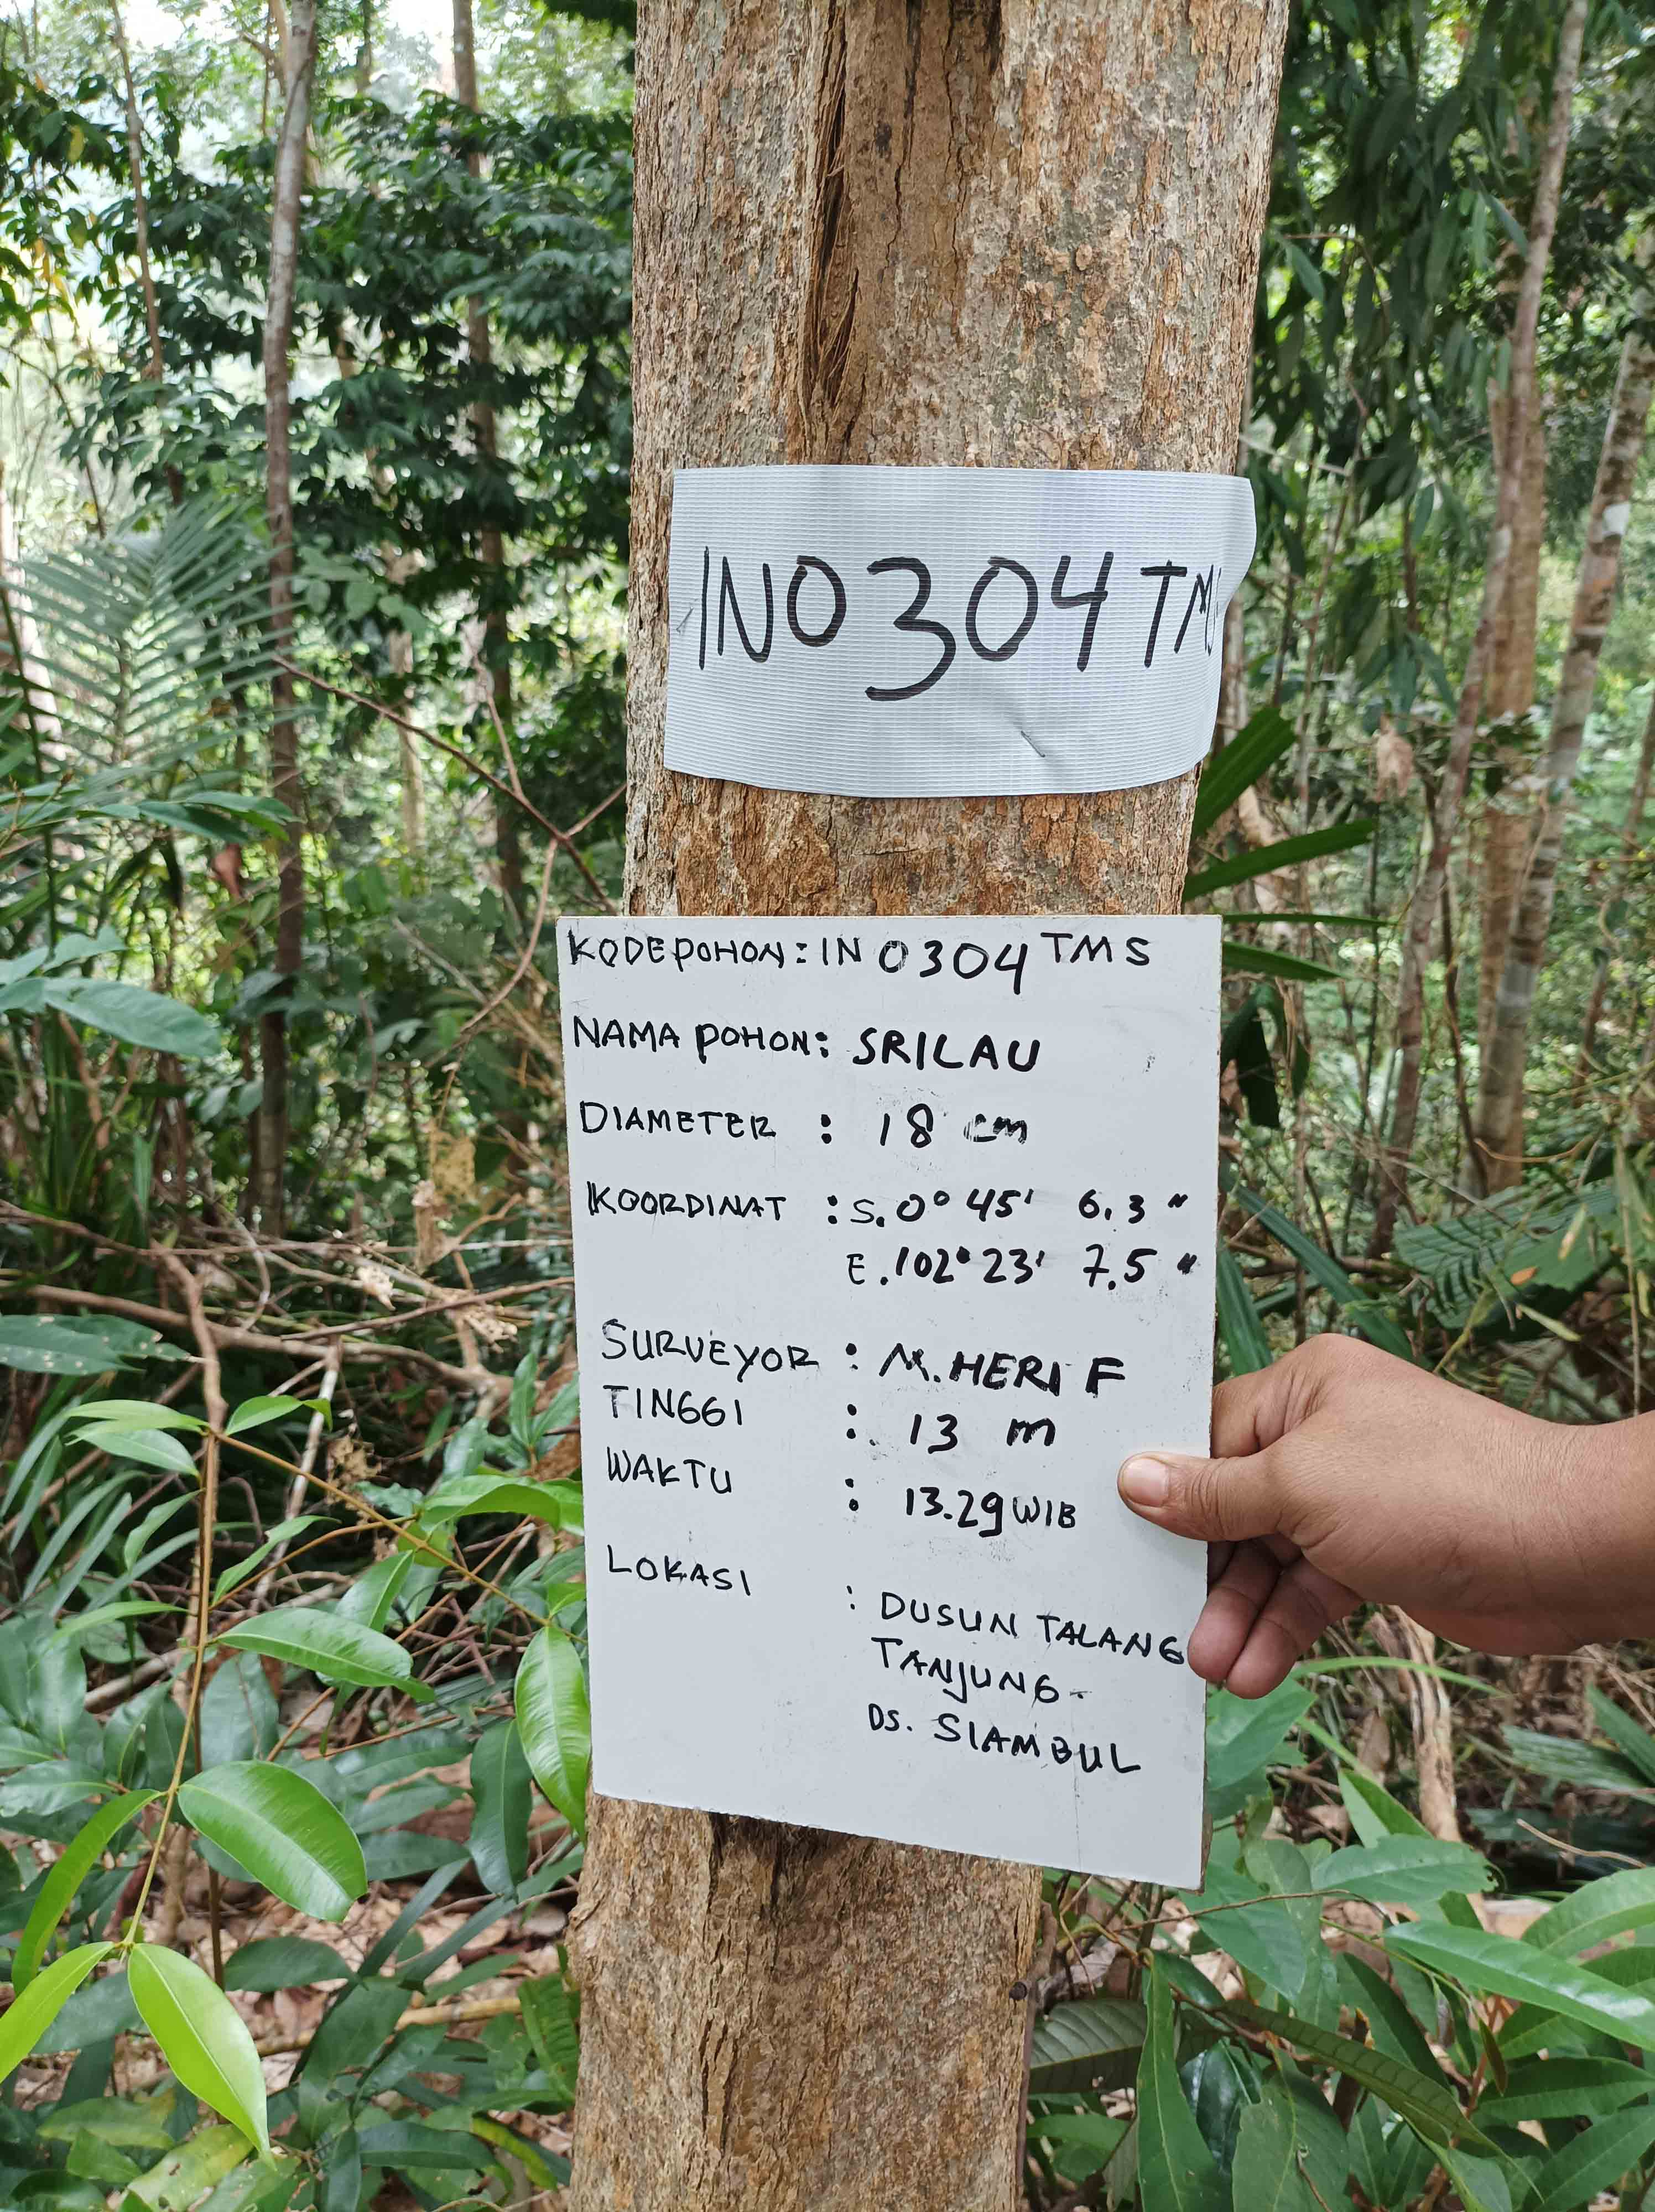 IN0304 TMS
KODE POHON : IN 0304 TMS
NAMA POHON : SRILAU
DIAMETER : 18 cm
KOORDINAT : S. 0° 45' 6.3 "
E. 102° 23' 7.5 "
SURVEYOR : M. HERI F
TINGGI : 13 m
WAKTU : 13.29 WIB
LOKASI : DUSUN TALANG
TANJUNG -
DS. SIAMBUL